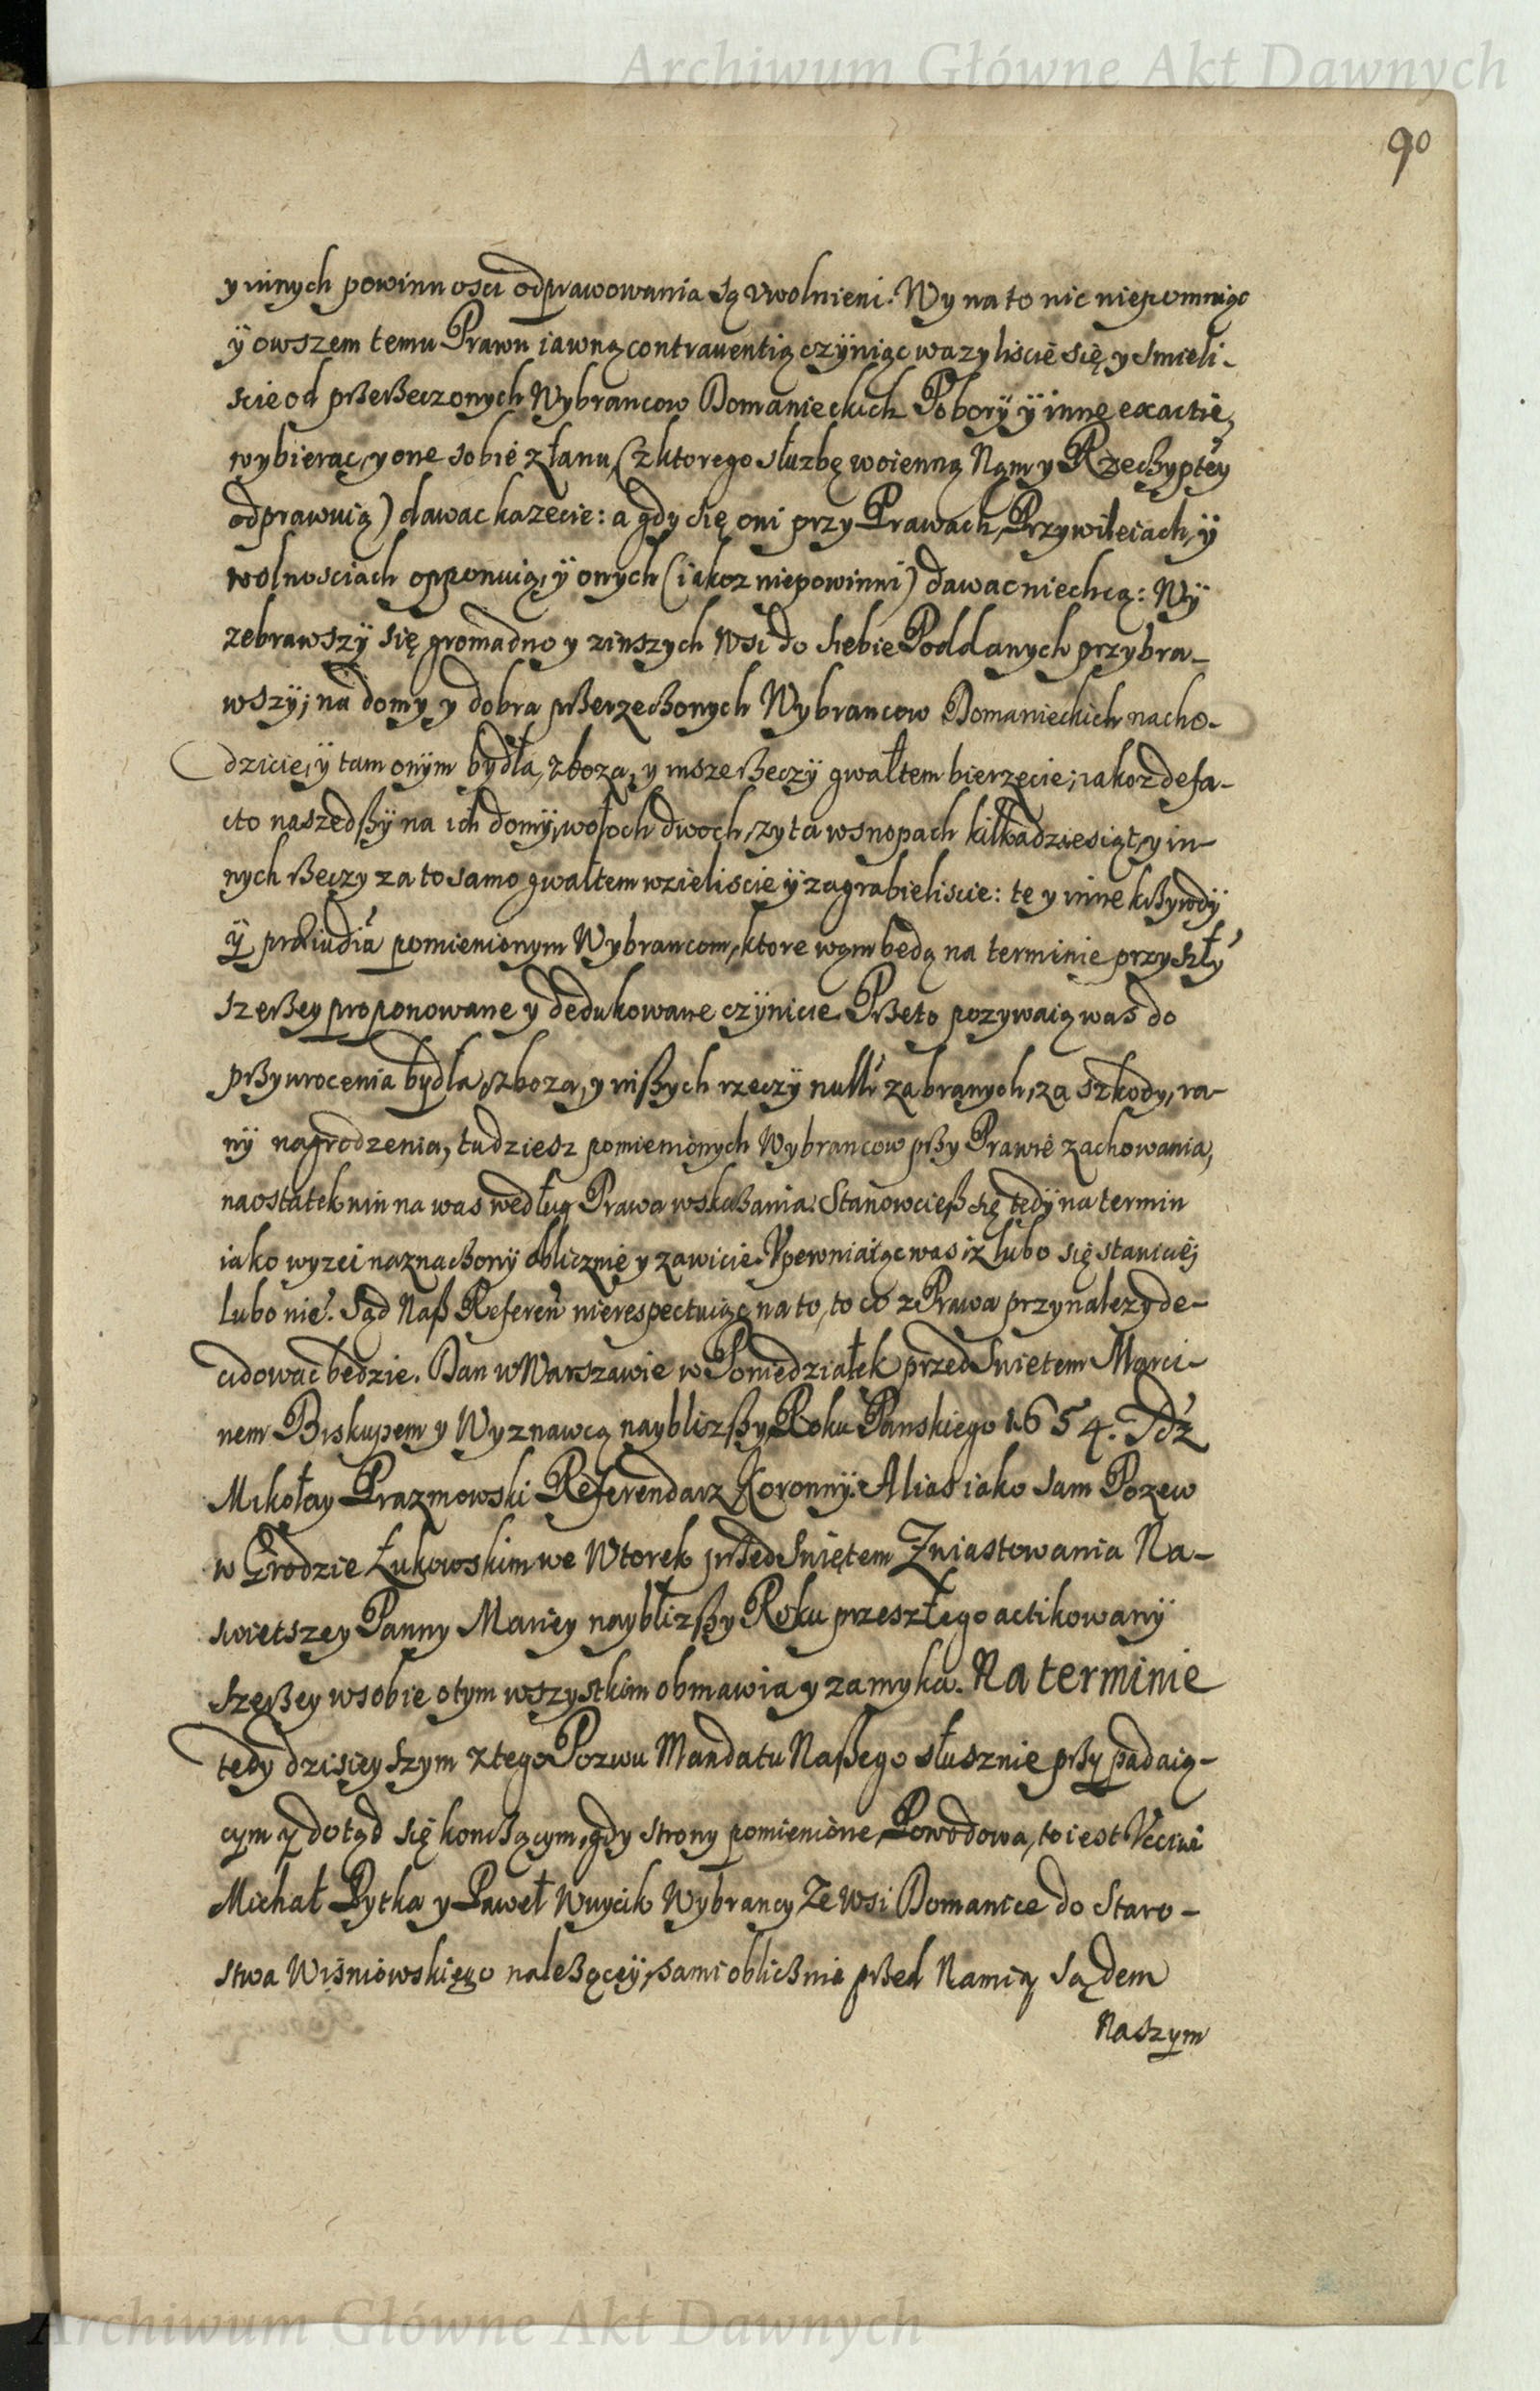 Archiwum Główne Akt Dawnych
90
y innych powinnosci odprawowania są vwolnieni. Wy na to nic niepomniąc
ÿ owszem temu Prawu iawną contrauentią czÿniąc wazyliscie się, y smieli-
scie od przerzeczonych Wybrancow Domanieckich Poborÿ ÿ inne exactie,
wybierac, y one sobie z łanu, (z ktorego słuzbę woienną Nąm y Rzeczyptey
odprawuią) dawac kazecie: a gdy się oni przy Prawach, Przywileiach, ÿ
wolnosciach opponuią, ÿ onych (iakoz niepowinni) dawac niechcą: Wÿ
zebrawszÿ się gromadno y z inszych Wsi do siebie Poddanych przybra-
wszÿ; na domy y dobra przerzeczonych Wybrancow Domanieckich nacho-
dzicie, ÿ tam onÿm bydła, zboza, y insze rzeczÿ gwałtem bierzecie; iakoz defa-
cto naszedszÿ na ich domÿ, wołoch dwoch, zyta w snopach kilkadziesiąt, y in-
nych rzeczy za to samo gwałtem wzieliscie ÿ zagrabieliscie: te y inne krzywdÿ
ÿ præiudia pomienionym Wybrancom, ktore wąm będą na terminie przyszły
szerzey proponowane y dedukowane czÿnicie. Przeto pozywaią was do
przywrocenia bydła, zboza, y inszych rzeczÿ null' zabranych, za szkody, ra-
nÿ nagrodzenia, tudziesz pomienionych Wybrancow przy Prawie zachowania,
na ostatek win na was według Prawa wskazania. Stanowciesz się tedÿ na termin
iako wyzei naznaczonÿ oblicznie y zawicie. Vpewniaiąc was iz lubo się staniciei
lubo nie. Sąd Nasz Referen' nierespectuiąc na to, to co z Prawa przynalezy de-
cidowac będzie. Dan w Warszawie w Poniedziałek przed Swietem Marci-
nem Biskupem y Wyznawcą nayblizszy Roku Panskiego 1654. Idz
Mikołay Prazmowski Referendarz Koronnÿ. Alias iako sam Pozew
w Grodzie Łukowskim we Wtorek przed Swiętem Zwiastowania Na-
swietszey Panny Mariey nayblizszy Roku przeszłego actikowanÿ
szerzey w sobie o tym wszystkim obmawia y zamyka. Na terminie
tedy dzisieyszym z tego Pozwu Mandatu Naszego słusznie przypadaią-
cym y dotąd się konczącym, gdy strony pomienione, Powodowa, to iest Vcciwi
Michał Pytka y Paweł Wuycik Wybrancy Ze Wsi Domanice do Staro-
stwa Wisniowskiego nalezącÿ, sami oblicznie przed Nami y Sądem
Naszym
Archiwum Główne Akt Dawnych